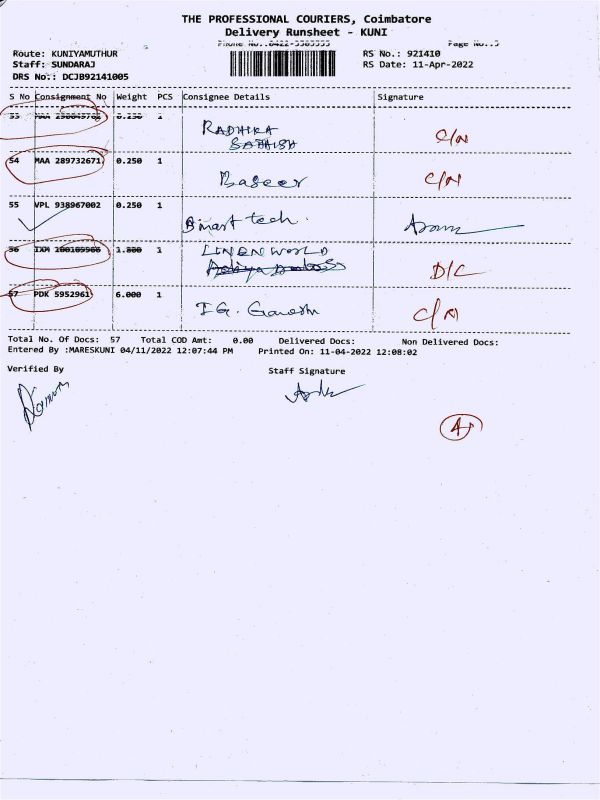 THE PROFESSIONAL COURIERS, Coimbatore
Delivery Runsheet - KUNI
Phone No.:0422- Page No.:5
Route: KUNIYAMUTHUR RS No.: 921410
Staff: SUNDARAJ RS Date: 11-Apr-2022
DRS No:: DCJB92141005
S No Consignment No Weight PCS Consignee Details Signature
53 MAA 0.250 1 RADHIKA
SATHISH C/N
54 MAA 289732671 0.250 1
Baseer C/N
55 VPL 938967002 0.250 1
Smart tech.
56 IXM 1 LINEN WORLD
D/C
57 PDK 5952961 6.000 1
I G. Ganesh C/N
Total No. Of Docs: 57 Total COD Amt: 0.00 Delivered Docs: Non Delivered Docs:
Entered By :MARESKUNI 04/11/2022 12:07:44 PM Printed On: 11-04-2022 12:08:02
Verified By Staff Signature